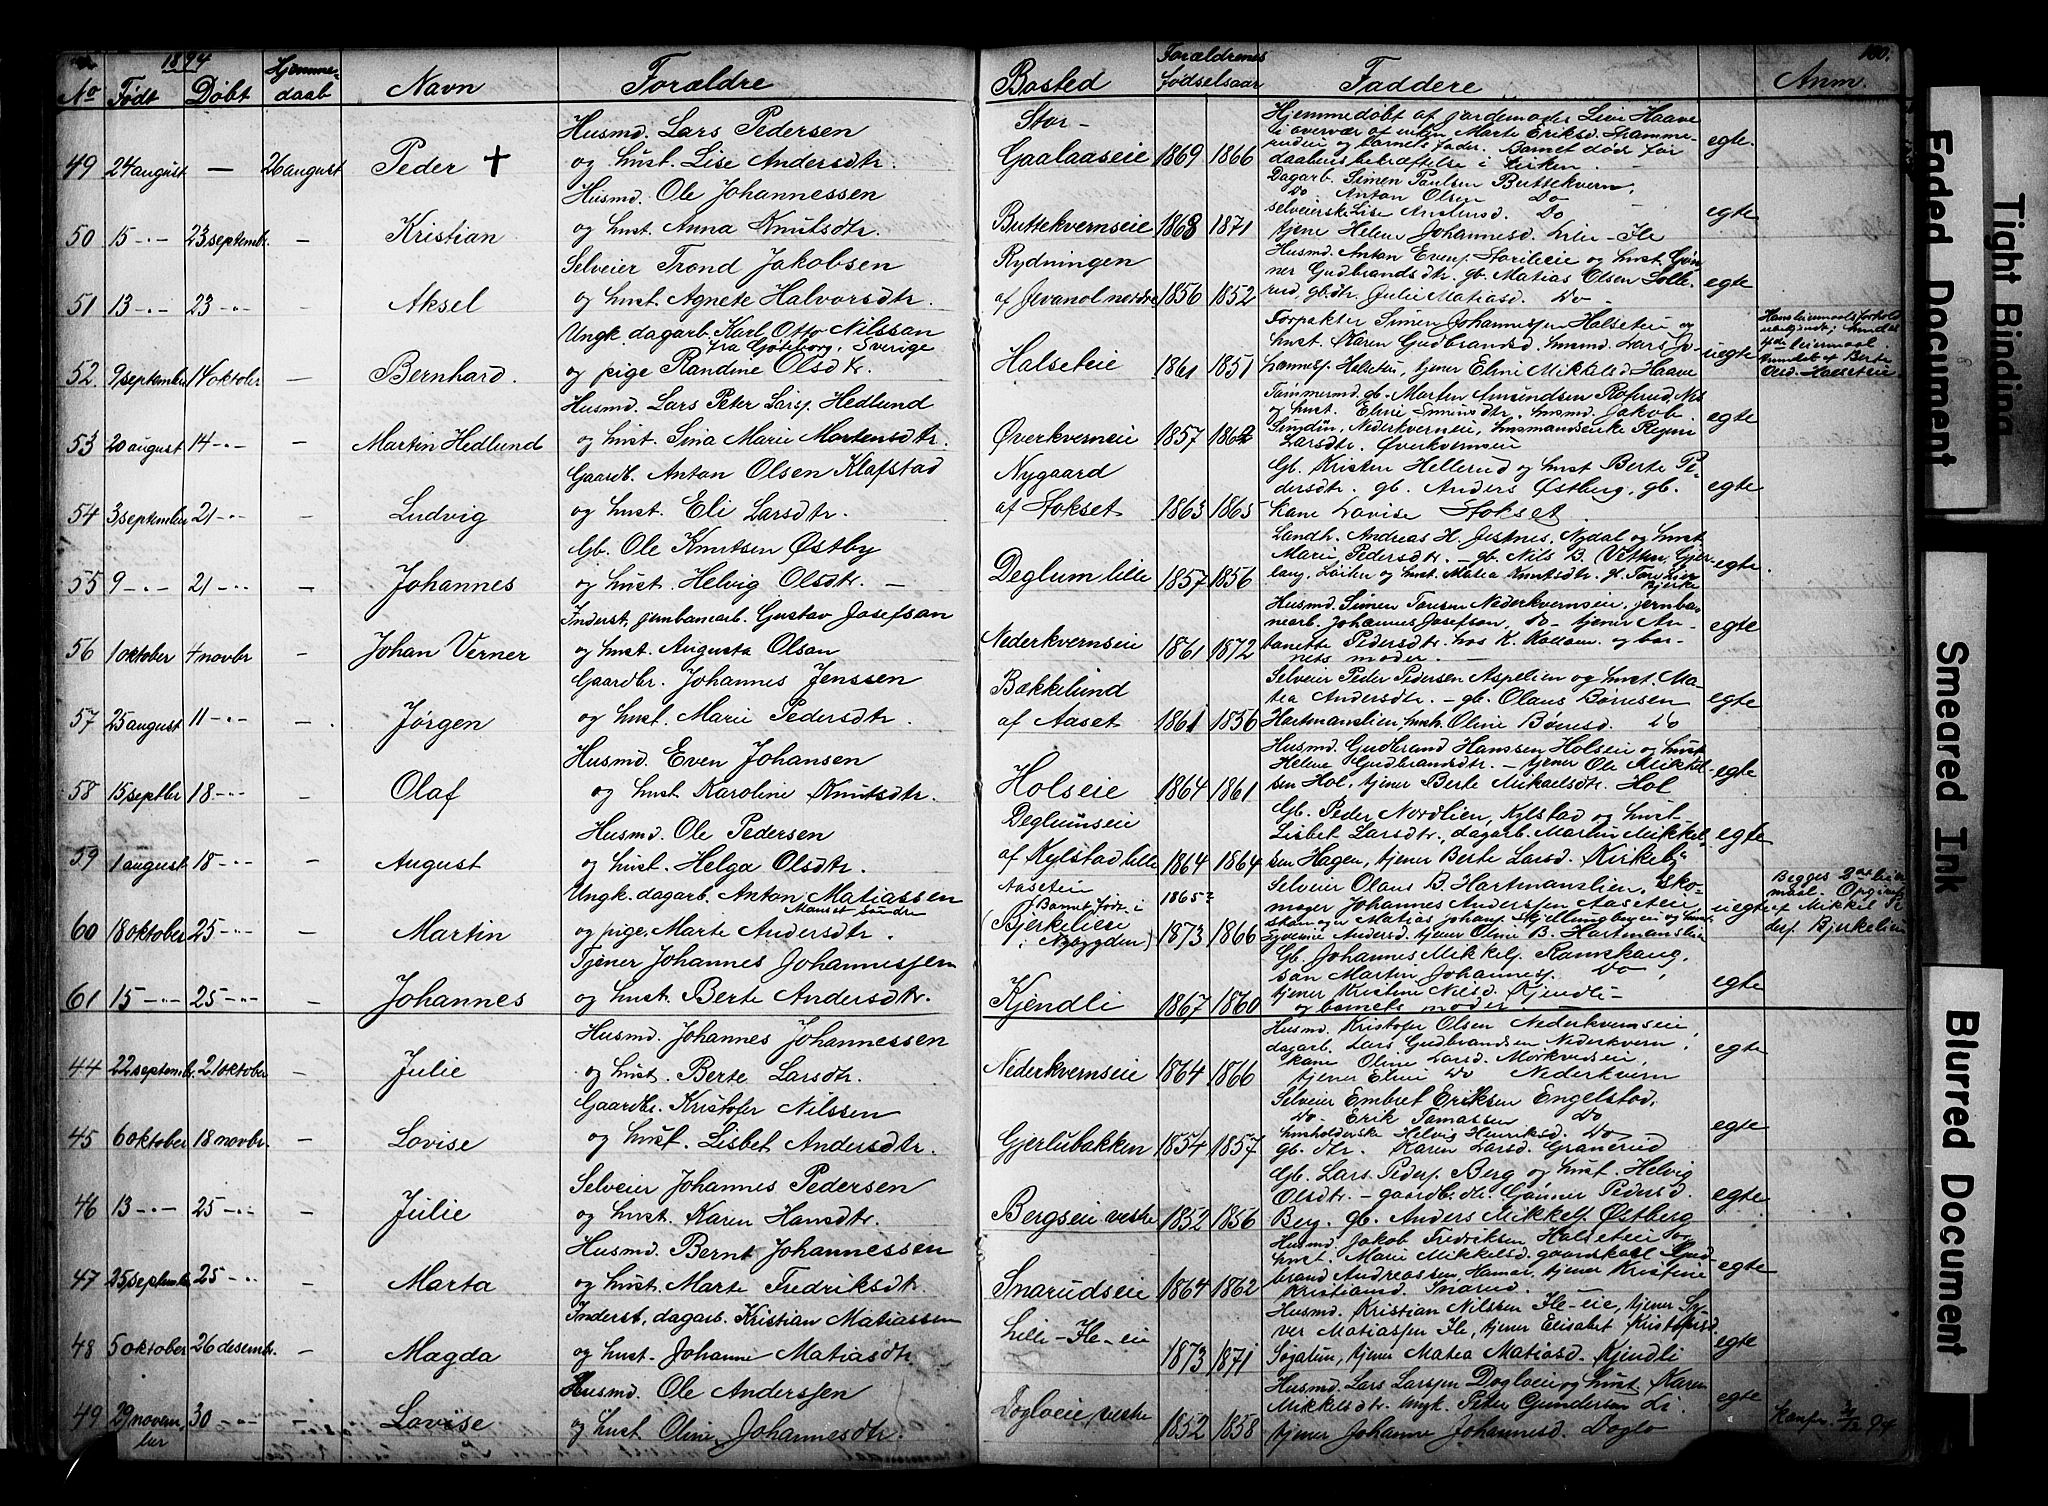 1894
No Født Døbt Hjemmedaab Navn Forældre Bosted Forældrenes fødselsaar Faddere Anm. 180.
Husmd. Lars Pedersen Stor- Hjemmedøbt af jordemoder Livi Haave
49 24 august — 26 august Peder + og hust. Lise Andersdtr. Gaalaaseie 1869 1866 egte.
daabens bekræftelse i kirken.
Husmd. Ole Johannessen Dagarb. Simen Paulsen Buttekvern,
Do Anton Olsen Do
50 15 -"- 23 septembr. — Kristian og hust. Anna Knutsdtr. Buttekvernseie 1868 1871 selveierske Lise Andersd. Do egte
tjene Helene Johannesd. Lille-Ile
Selveier Trond Jakobsen Rydningen Husmd. Anton Evensen
51 13 -"- 23 -"- — Aksel og hust. Agnete Halvorsdtr. af Jevanol nordre 1856 1852 ner Gudbrandsdtr. gb. Matias Olsen Solle- egte
rud, gb. dtr. Julie Matiasd. Do
Ungk. dagarb. Karl Otto Nilssan Forpakter Simen Johannessen Halseteie og
fra Gøteborg, Sverige hust. Karen Gudbrandsd. husmd. Lars Jo-
52. 9 september 14 oktober — Bernhard. og pige Randine Olsdtr. Halseteie 1861 1851 hanness. Halseteie, tjener Eline Mikkelsd. Haave uegte
Olsd. Halseteie
Husmd. Lars Peter Larss. Hedlund Tømmermd. gb. Martin Amundsen Rosrud,
53 20 august 14 -"- — Martin Hedlund og hust. Sina Marie Mortensdtr. Øverkverneie 1857 1862 og hust. Eline Simensdtr. husmd. Jakob egte
Larsdtr. Øverkvernseie
Gaardb. Anton Olsen Klafstad Nygaard Gb. Kristen Hellerud og hust Berte Pe-
54 3 september 21 -"- — Ludvig og hust. Eli Larsdtr. af Stokset 1863 1865 dersdtr. gb. Anders Østberg, gb. egte
kane Lovise Stokset
Gb. Ole Knutsen Østby Landh. Andreas H. Jestnes, Nydal og hust
55 9 -"- 21 -"- — Johannes og hust. Helvig Olsdtr. — Deglum lille 1857 1856 Marie Pedersdtr. — gb. Nils B. Vetten, Gjer- egte.
lang, Løiten og hust. Matea Knutsdtr.
Inderst, jernbanearb. Gustav Josefsan Husmd. Simen Tansen Nederkvernseie, jernba-
56 1 oktober 4 novbr — Johan Verner og hust. Augusta Olsan Nederkvernseie 1861 1872 nearb. Johannes Josefson, Do — tjener An- egte
tanette Pedersdtr. hos K. Kollom. og bar-
nets moder. —
Gaardbr. Johannes Jenssen Bækkelund Selveier Peder Pedersen Aspelien og hust. Ma-
57 25 august 11 -"- — Jørgen og hust. Marie Pedersdtr. af Aaset 1861 1856 tea Andersdtr. — gb. Olaus Børresen egte
Hartmanslien hust. Oline Børresd. Do
Husmd. Even Johansen Husmd. Gudbrand Hanssen Holseie og hust
58 15 septbr 18 -"- — Olaf og hust Karoline Knutsdtr. Holseie 1864 1861 Helene Gudbrandsdtr. — tjener Ole Mikkel- egte
sen Hol, tjener Berte Mikaelsdtr. Hol
Husmd. Ole Pedersen Deglumseie Gb. Peder Nordlien, Kylstad og hust.
59 1 august 18 -"- — August og hust. Helga Olsdtr. af Kylstad lille 1864 1864 Lisbet Larsdtr. dagarb. Martin Mikkel- egte
sen Hagen, tjener Berte Larsd. Kirkeby
Ungk. dagarb. Anton Matiassen Aaseteie 1865? Selveier Olaus B. Hartmanslien, sko-
60 18 oktober 25 -"- — Martin og pige. Marte Andersdtr. (Barnet født i Bjerkelieie i Nybygden) 1873 1866 mager Johannes Anderssen Aaseteie, uegte
tjener Oline B. Hartmanslien
Begges 2det leiermaal. af Mikkel Pedersen Bjerkelien
Tjener Johannes Johannessen Gb. Johannes Mikkels. Ramskaug,
61 15 -"- 25 -"- — Johannes og hust. Berte Andersdtr. Kjendli 1867 1860 søn Martin Johanness. Do, egte
tjener Kristine Nilsd. Kjendli —
og barnets moder.
Husmd. Johannes Johannessen Husmd. Kristofer Olsen Nederkvernseie,
44 22 septemb. 21 oktober — Julie og hust. Berte Larsdtr. Nederkvernseie 1864 1866 dagarb. Lars Gudbrandsen Nederkvern, egte
kane Oline Larsd. Morkveseie,
tjener Eline Do Nederkvern
Gaardbr. Kristofer Nilssen Selveier Embret Eriksen Engelstad,
Do Erik Tamassen Do
45 6 oktober 18 novbr. — Lovise og hust. Lisbet Andersdtr. Gjerlubakken 1854 1857 husholderske Helvig Henriksd. Do egte
gb. dtr. Karen Larsd. Granerud
Selveier Johannes Pedersen Gb. Lars Peders. Berg og hust. Helvig
46 13 -"- 25 -"- — Julie og hust. Karen Hansdtr. Bergseie vestre 1852 1856 Olsdtr. — gaardb. dtr. Gønner Pedersd. egte
Berg. gb. Anders Mikkels. Østberg
Husmd. Bernt Johannessen Husmd. Jakob Fredriksen Halseteie og
47 25 septembr. 25 -"- — Marta og hust. Marte Fredriksdtr. Snarudseie 1864 1862 hust. Marie Mikkelsd. gaardskarl Gud- egte
brand Andreassen, Hamar, tjener Kristine
Kristiansd. Snarud.
Inderst, dagarb. Kristian Matiassen Husmd. Kristian Nilssen Ile-eie, tjener Sy-
48 5 oktober 26 desembr. — Magda og hust. Johanne Matiasdtr. Lille-Ile-eie 1873 1871 ver Matiassen Ile, tjener Elisabet Kristofersd. egte
Søgaten, tjener Matea Matiasd. Kjendli
Husmd. Ole Anderssen Husmd. Lars Larssen Dogloeie og hust Karen
49 29 november 30 -"- — Lovise og hust Oline Johannesdtr. Dogloeie vestre 1852 1858 Mikkelsdtr. ungk. Peter Gundersen Li. egte
tjener Johanne Johannesd. Doglo Konfr. 31/12 94
Faded Document
Tight Binding
Smeared Ink
Blurred Document